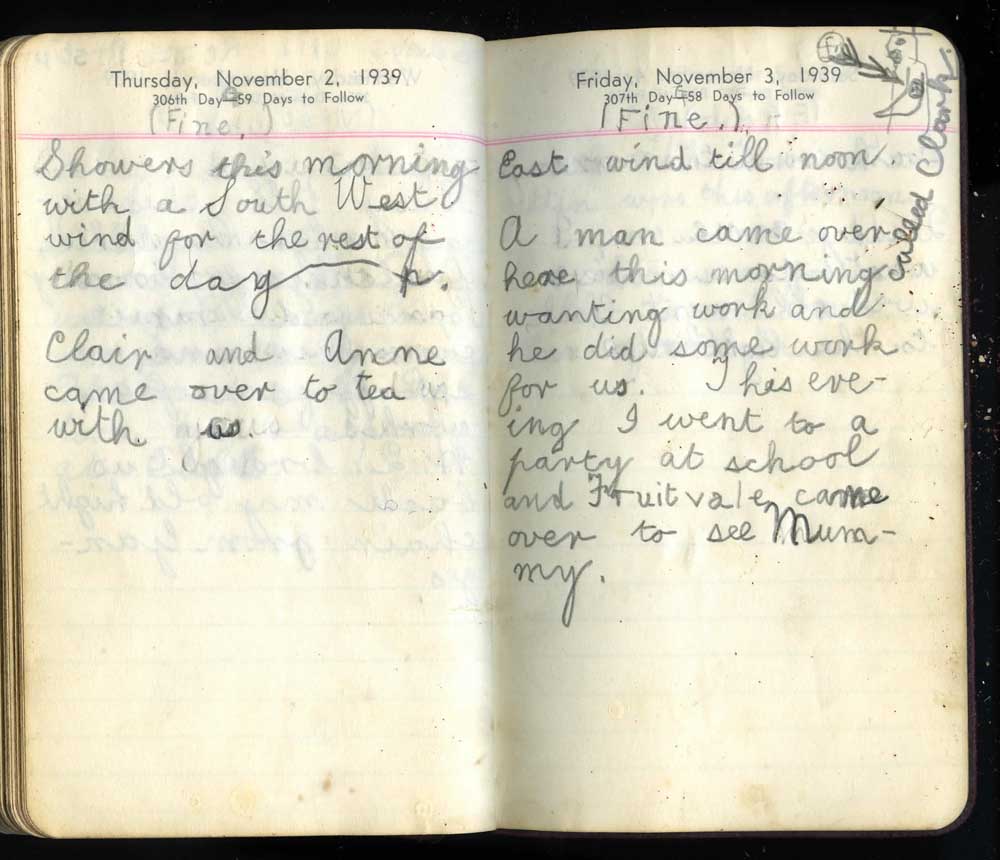 Thursday, November 2, 1939
306th Day—59 Days to Follow
(Fine.)
Showers this morning
with a South West
wind for the rest of
the day
Clair and Anne
came over to tea
with us.
Friday, November 3, 1939
307th Day—58 Days to Follow
(Fine.)
East wind till noon.
A man came over
here this morning
wanting work and
he did some work
for us. This eve-
ing I went to a
party at school
and Fruitvale came
over to see Mum-
my.
called Clark.